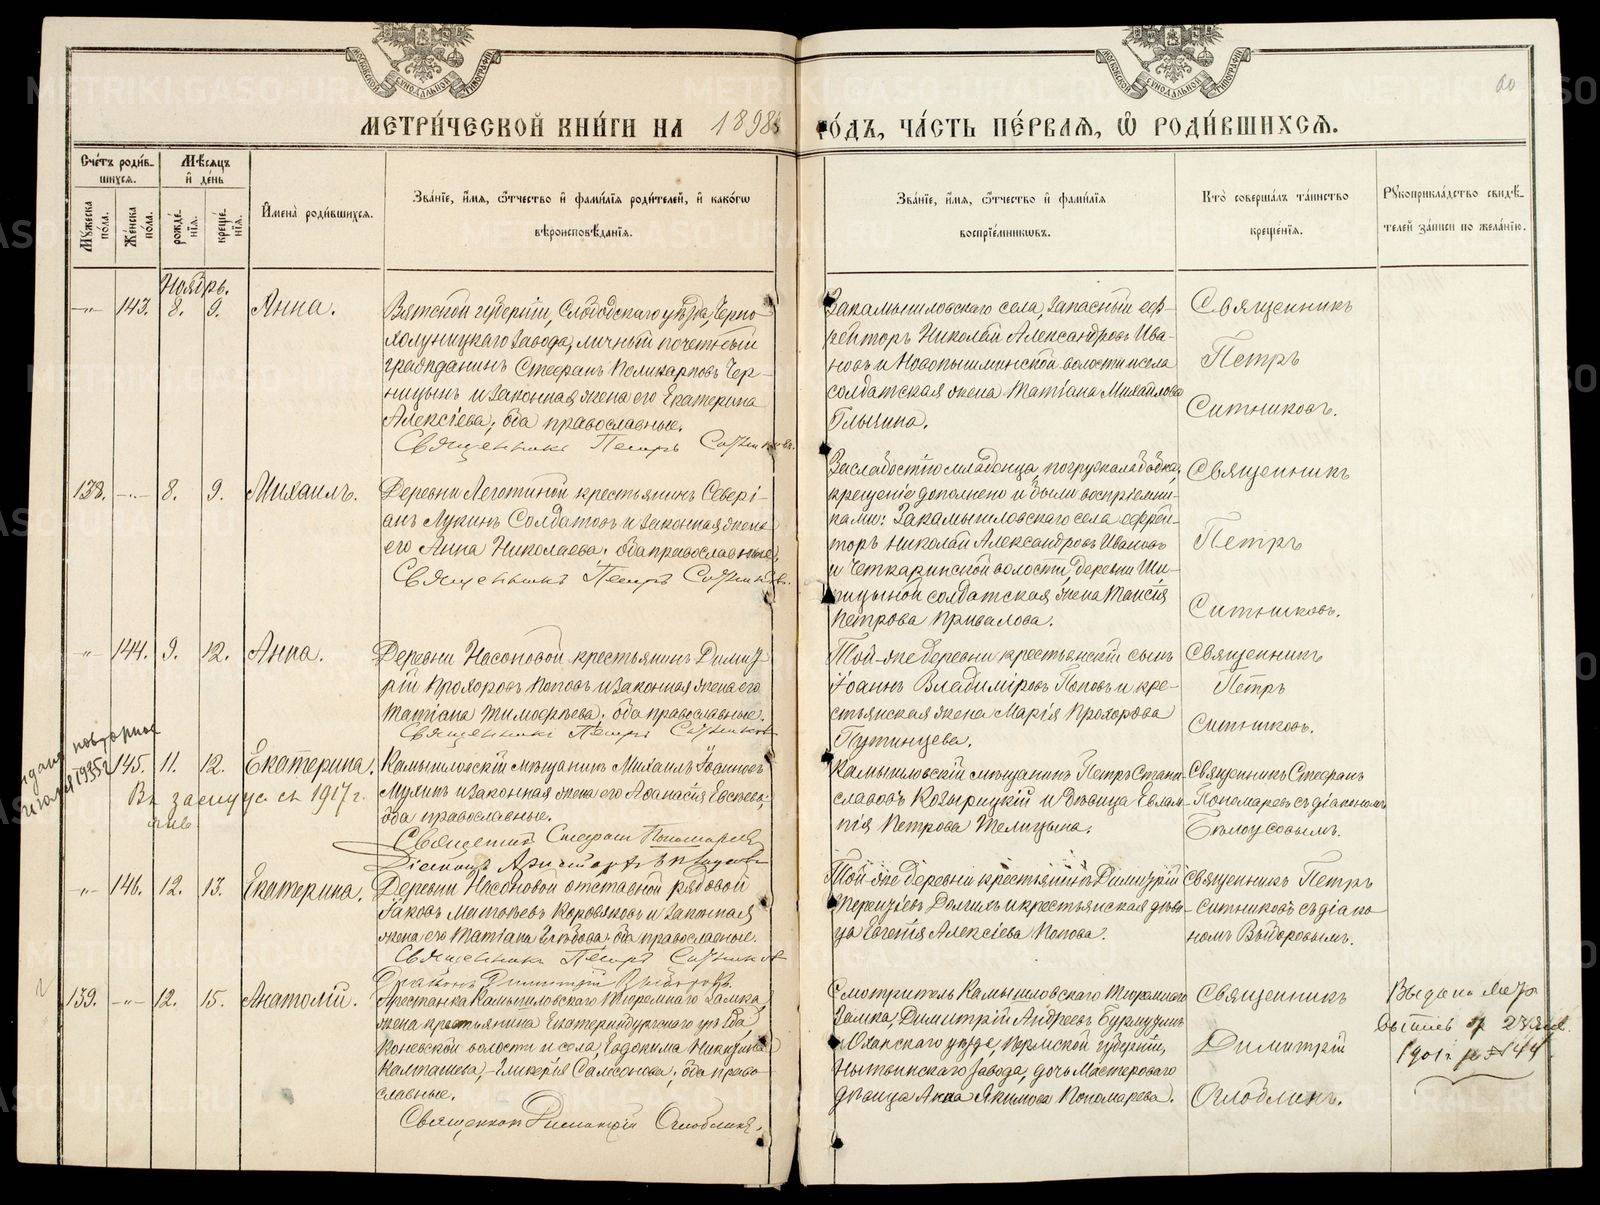 МОСКОВСКОЙ СѴНОДАЛЬНОЙ ТИПОГРАФІИ
МОСКОВСКОЙ СѴНОДАЛЬНОЙ ТИПОГРАФІИ
60
МЕТРИ́ЧЕСКОЙ КНИ́ГИ НА 1898
ГО́ДЪ, ЧА́СТЬ ПЕ́РВАЯ, Ѽ РОДИ́ВШИХСЯ.
Сче́тъ роди́в-
шихся.
Мѣ́сяцъ
и҆ де́нь
Мꙋ́жеска по́ла.
Же́нска по́ла.
рожде́-нїя.
креще́-нїя.
И҆мена̀ роди́вшихся.
Зва́нїе, и҆́мя, ѻ҆́тчество и҆ фами́лїя роди́телей, и҆ како́гѡ
вѣроисповѣ́данїя.
Зва́нїе, и҆́мя, ѻ҆́тчество и҆ фами́лїя
воспрїе́мникѡвъ.
Кто̀ соверша́лъ та́инство
креще́нїя.
Рꙋкоприкла́дство свидѣ́-
телей за́писи по жела́нїю.
Ноябрь.
143. 8. 9. Анна.
Вятской губерніи, Слободскаго уѣзда, Черно-
холуницкаго завода, личный почетный
гражданинъ Стефанъ Поликарповъ Чер-
ницынъ и законная жена его Екатерина
Алексіева, оба православные.
Священникъ Петръ Ситниковъ.
Закамышловскаго села, запасный еф-
рейторъ Николай Александровъ Ива-
новъ и Новопышминской волости и села
солдатская жена Татіана Михайлова
Глызина.
Священникъ
Петръ
Ситниковъ.
138. 8. 9. Михаилъ.
Деревни Леготиной крестьянинъ Севері-
анъ Лукинъ Солдатовъ и законная жена
его Анна Николаева, оба православные.
Священникъ Петръ Ситниковъ.
За слабостію младенца, погружала бабка,
крещеніе дополнено и были воспріемни-
ками: Закамышловскаго села ефрей-
торъ Николай Александровъ Ивановъ
и Четкаринской волости, деревни Ши-
пицыной солдатская жена Таисія
Петрова Привалова.
Священникъ
Петръ
Ситниковъ.
144. 9. 12. Анна.
Деревни Насоновой крестьянинъ Димит-
рій Прохоровъ Поповъ и законная жена его
Татіана Тимофѣева, оба православные.
Священникъ Петръ Ситниковъ
Той-же деревни крестьянскій сынъ
Іоаннъ Владиміровъ Поповъ и кре-
стьянская жена Марія Прохорова
Путинцева.
Священникъ
Петръ
Ситниковъ.
повторное
1935 г.
145. 11. 12. Екатерина.
1917 г.
Камышловскій мѣщанинъ Михаилъ Іоанновъ
Мухинъ и законная жена его Афанасія Евсѣева,
оба православные.
Священникъ Стефанъ Пономаревъ
Камышловскій мѣщанинъ Петръ Стани-
славовъ Козырицкій и дѣвица Евлам-
пія Петрова Телицына.
Священникъ Стефанъ
Пономаревъ съ діакономъ
Бѣлоусовымъ.
146. 12. 13. Екатерина.
Деревни Насоновой отставной рядовой
Іаковъ Матвѣевъ Коровяковъ и законная
жена его Татіана Глѣбова, оба православные.
Священникъ Петръ Ситниковъ
Діаконъ Димитрій Выборовъ.
Той-же деревни крестьянинъ Димитрій
Терентіевъ Долгихъ и крестьянская дѣви-
ца Евгенія Алексіева Попова.
Священникъ Петръ
Ситниковъ съ діако-
номъ Выборовымъ.
139. 12. 15. Анатолій.
Арестанка Камышловскаго тюремнаго замка,
жена крестьянина Екатеринбургскаго уѣзда,
Коневской волости и села, Евдокима Никитина
Калташева, Гликерія Самсонова, оба право-
славные.
Священникъ Димитрій Оглоблинъ.
Смотритель Камышловскаго тюремнаго
замка, Димитрій Андреевъ Бурмузинъ
и Оханскаго уѣзда, Пермской губерніи,
Нытвинскаго завода, дочь мастероваго
дѣвица Анна Якимова Пономарева.
Священникъ
Димитрій
Оглоблинъ.
Выдана
1901 г. № 144
METRIKI.GASO-URAL.RU